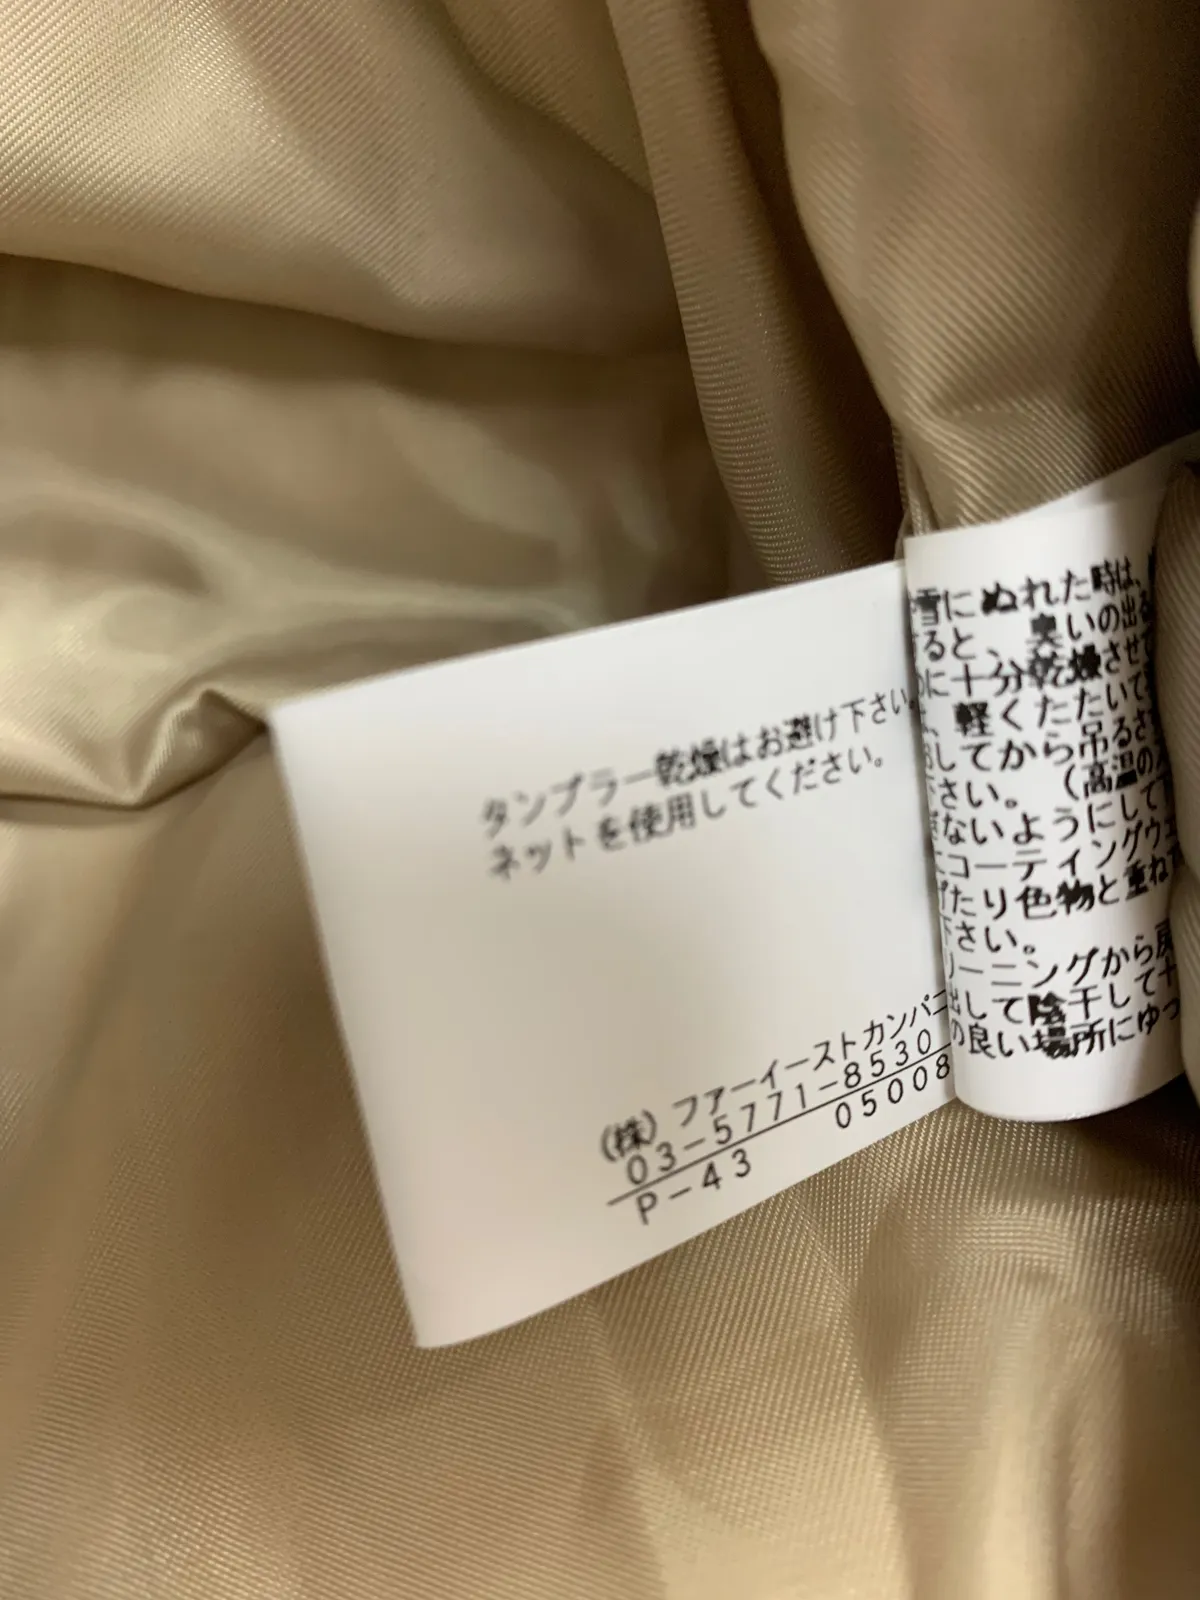 タンブラー乾燥はお避け下さい。
ネットを使用してください。
(株) ファーイーストカンパニ
03-5771-8530
05008
P-43
雪にぬれた時は、
ると、臭いの出る
に十分乾燥させて
軽くたたいて
してから吊るさ
さい。(高温の
ないようにして下
コーティングウエ
たり色物と重ね
下さい。
リーニングから戻
出して陰干して十
の良い場所にゆっ